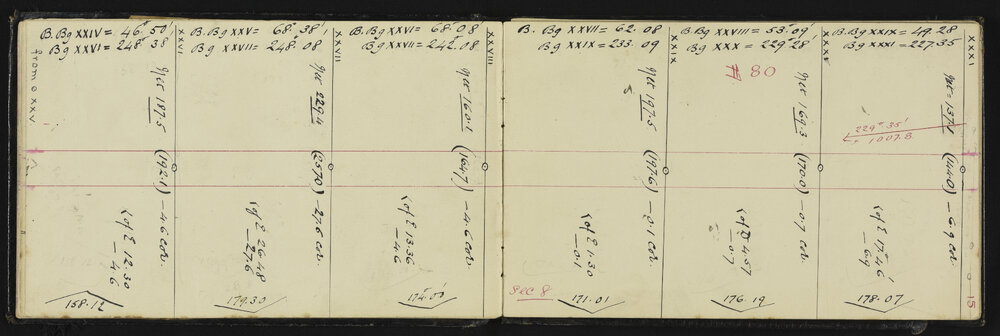 B. Bg XXIV = 46° 50'
Bg XXVI = 248° 38
XXVI
from ⊙ XXV.
hor 187.5
(192.1) – 4.6 cor.
∠ of E 12.30
– 4.6
158.12
B. Bg XXV = 68° 38'
Bg XXVII = 248° 08
XXVII
hor 229.4
(257.0) – 27.6 cor.
∠ of E 26.48
– 27.6
179.30
B. Bg XXVI = 68° 08'
Bg XXVII = 242° 08
XXVIII
hor 160.1
(164.7) – 4.6 cor.
∠ of E 13.36
– 4.6
174.00
B. Bg XXVII = 62.08
Bg XXIX = 233.09
XXIX
hor 197.5
5
(197.6) – 0.1 cor.
∠ of E 1.30
– 0.1
Sec 8
171.01
B. Bg XXVIII = 53.09'
Bg XXX = 229° 28'
XXX
# 80
hor 169.3
(170.0) – 0.7 cor.
∠ of E 4.57
– 0.7
176.19
B. Bg XXIX = 49.28
Bg XXXI = 227.35
XXXI
hor = 137.1
229° 35'
1007.8
(144.0) – 6.9 cor.
∠ of E 17.46
– 6.9
178.07
15